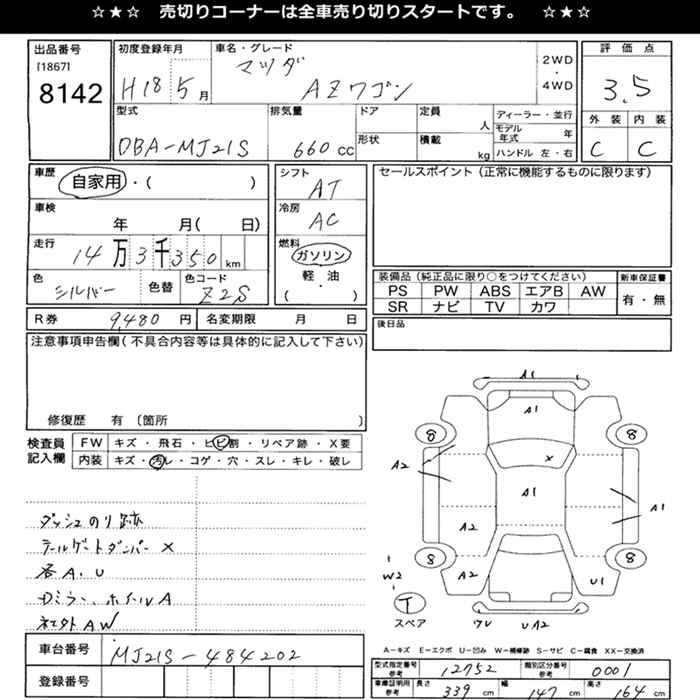 ☆★☆ 売切りコーナーは全車売り切りスタートです。 ☆★☆
出品番号 初度登録年月 車名・グレード 評価点
[1867] マツダ 2WD
8142 H18 5月 AZワゴン ・ 4WD 3.5
型式 排気量 ドア 定員 人 ディーラー・並行 外装 内装
形状 積載 kg モデル年式 年
DBA-MJ21S 660cc ハンドル 左・右 C C
車歴 自家用・( ) シフト AT セールスポイント(正常に機能するものに限ります)
車検 年 月( 日) 冷房 AC
走行 14万3千350km 燃料 ガソリン・軽油 ( )
色 シルバー 色替 色コード Z2S
装備品(純正品に限り○をつけてください) 新車保証書
PS PW ABS エアB AW 有・無
SR ナビ TV カワ
R券 9,480円 名変期限 月 日 後日品
注意事項申告欄(不具合内容等は具体的に記入して下さい)
修復歴 有〔箇所 〕
検査員記入欄 FW キズ・飛石・ヒビ割・リペア跡・X要
内装 キズ・汚レ・コゲ・穴・スレ・キレ・破レ
ダッシュのり跡
テールゲートダンパー×
各A.U
ホイルA
AW
A1
A1
8 8
A2 ×
A1 A1
A2
8 8
W2 A2 U1
T
スペア UA2
A-キズ E-エクボ U-凹み W-補修跡 S-サビ C-腐食 XX-交換済
車台番号 MJ21S-484202
型式指定番号 参考 12752 類別区分番号 参考 0001
登録番号
車庫証明用 参考 長さ 339cm 幅 147cm 高さ 164cm